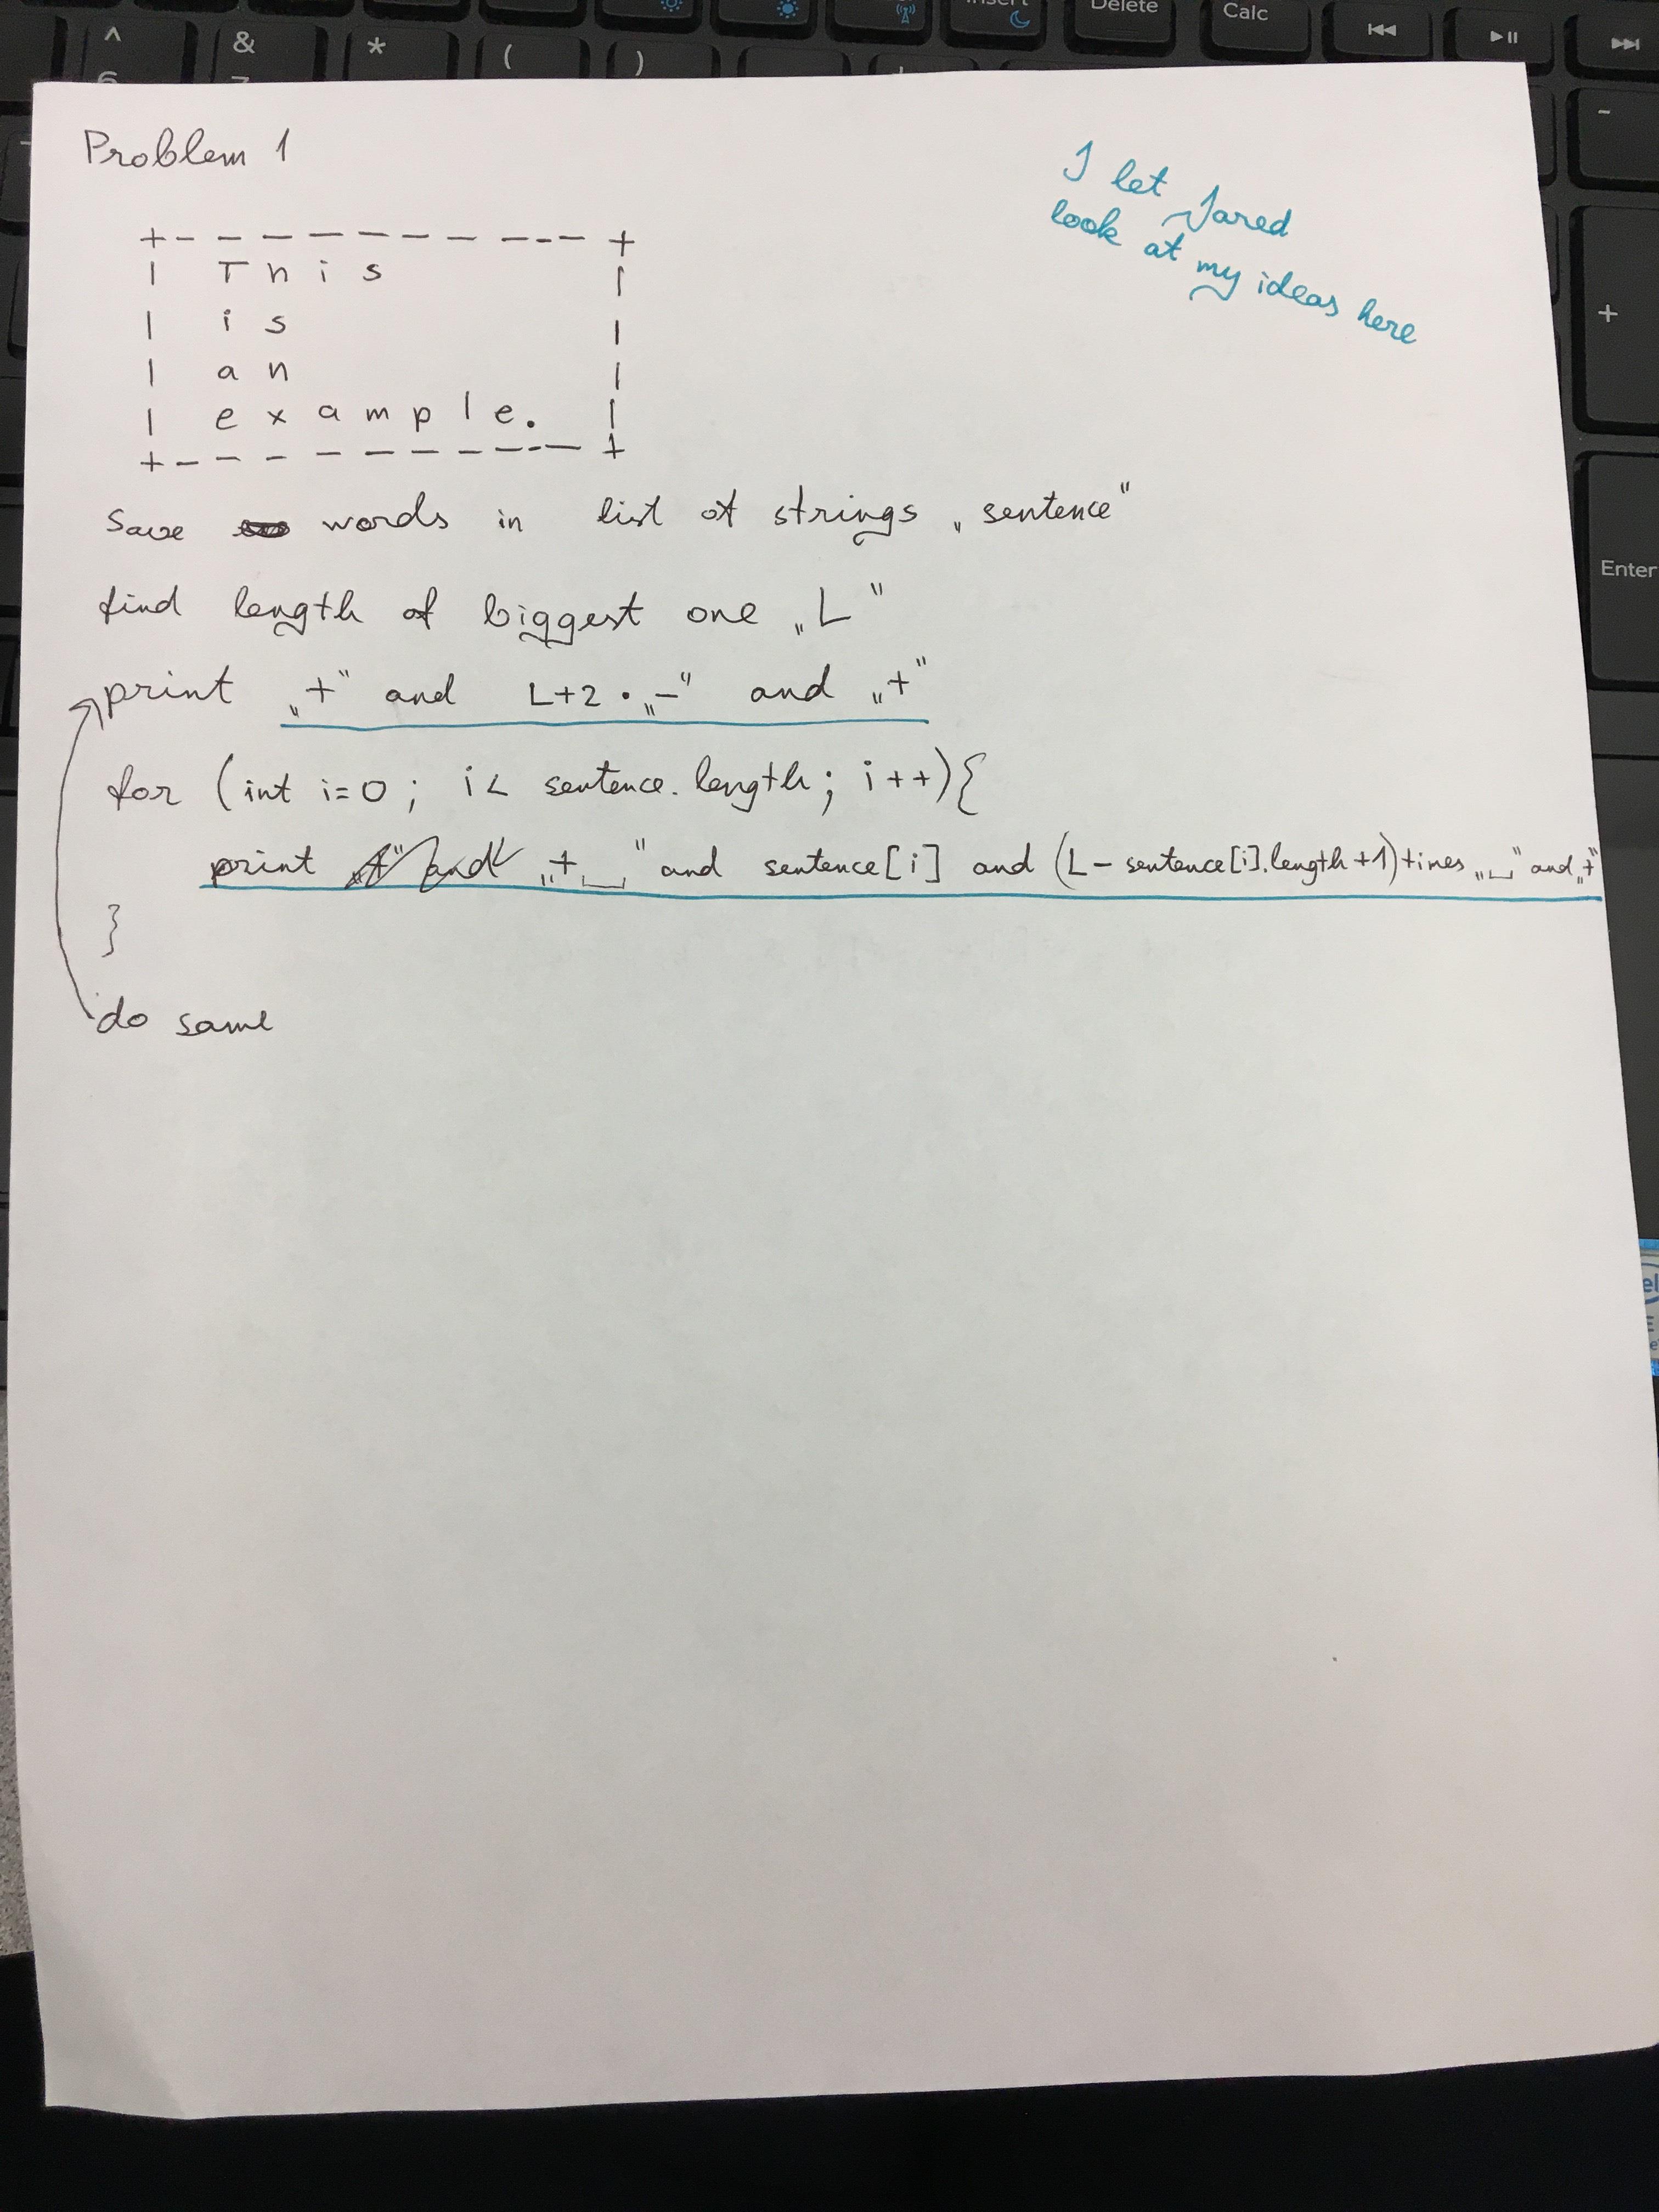 Problem 1
I let Jared
look at my ideas here
+ - - - - - - - - - - +
| T h i s |
| i s |
| a n |
| e x a m p l e . |
+ - - - - - - - - - - +
Save words in list of strings „sentence"
find length of biggest one „L"
print „+" and L+2 · „-" and „+"
for (int i=0; i< sentence.length; i++){
print „+␣" and sentence[i] and (L - sentence[i].length +1) times „␣" and „+"
}
do same
^
6
&
7
*
(
)
Insert
Delete
Calc
Enter
+
-